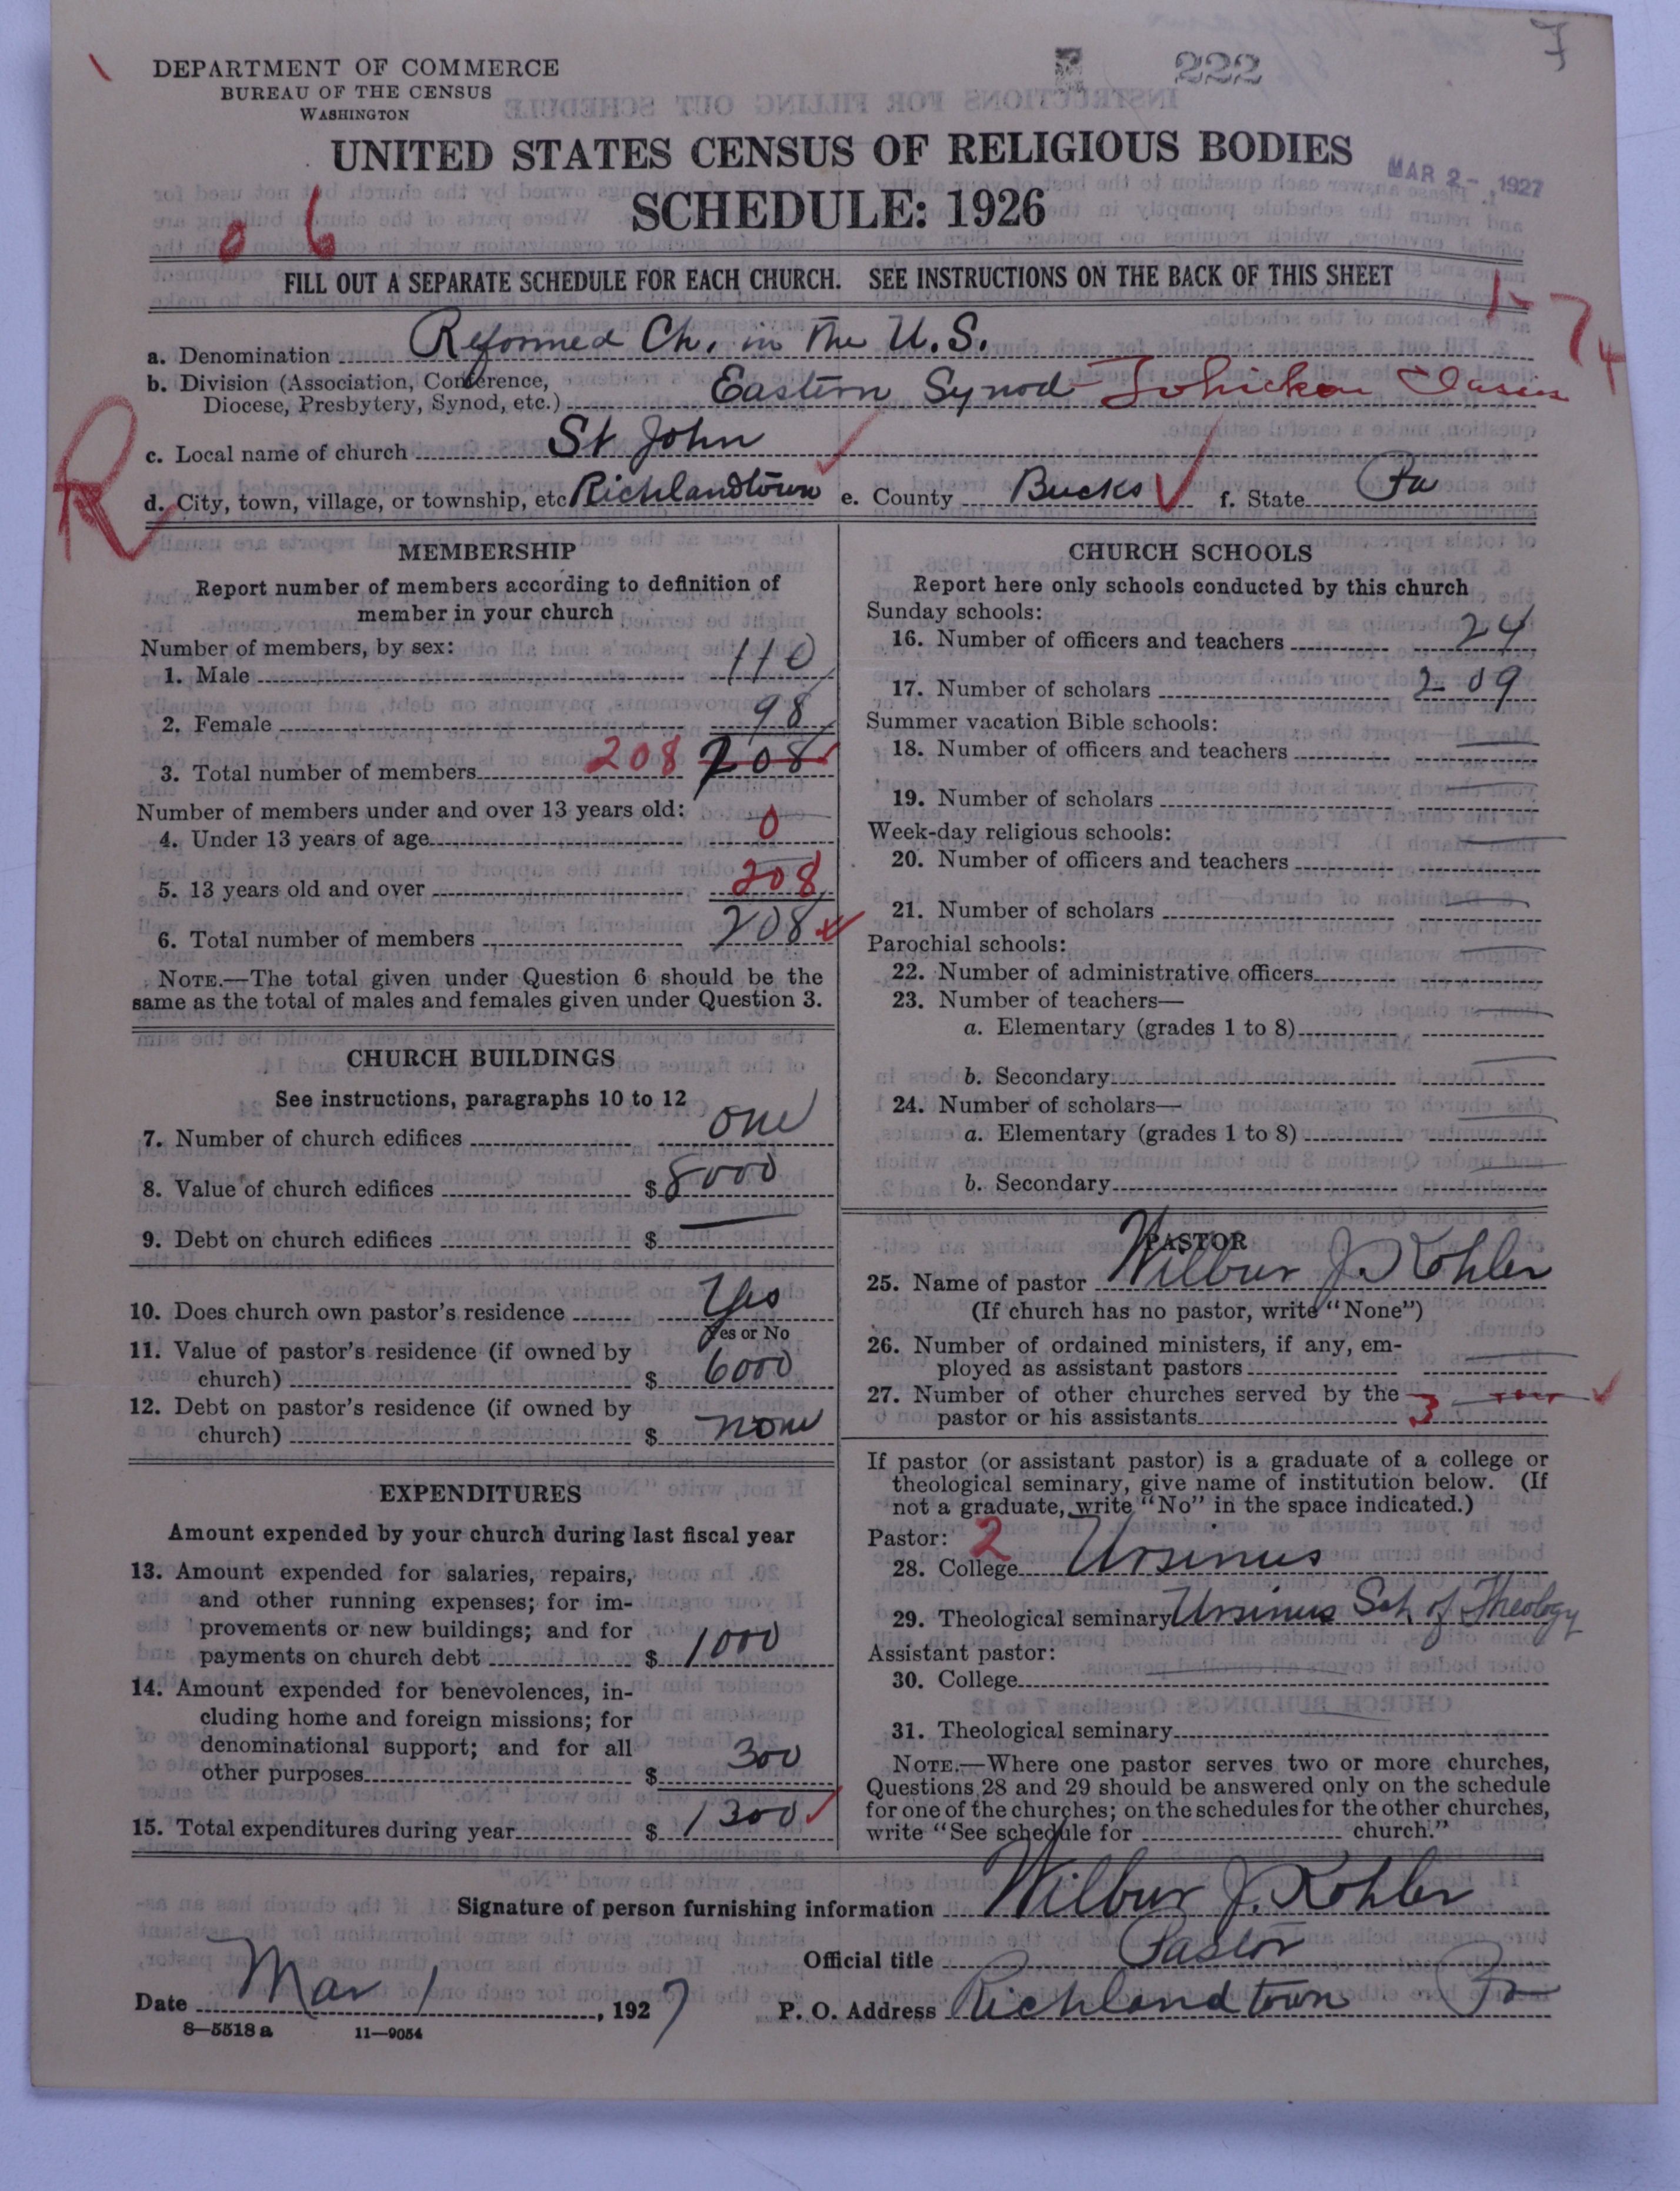 7
222
DEPARTMENT OF COMMERCE
BUREAU OF THE CENSUS
WASHINGTON
UNITED STATES CENSUS OF RELIGIOUS BODIES
SCHEDULE: 1926
MAR 2- 1927
0 6
FILL OUT A SEPARATE SCHEDULE FOR EACH CHURCH. SEE INSTRUCTIONS ON THE BACK OF THIS SHEET
1-74
a. Denomination Reformed Ch. in the U.S.
b. Division (Association, Conference, Diocese, Presbytery, Synod, etc.) Eastern Synod - Tohickon Classis
c. Local name of church St John
R
d. City, town, village, or township, etc Richlandtown e. County Bucks f. State Pa
MEMBERSHIP
Report number of members according to definition of
member in your church
Number of members, by sex:
1. Male 110
2. Female 98
3. Total number of members 208 208
Number of members under and over 13 years old:
4. Under 13 years of age 0
5. 13 years old and over 208
6. Total number of members 208
NOTE.—The total given under Question 6 should be the
same as the total of males and females given under Question 3.
CHURCH BUILDINGS
See instructions, paragraphs 10 to 12
7. Number of church edifices one
8. Value of church edifices $ 8000
9. Debt on church edifices $
10. Does church own pastor's residence Yes
Yes or No
11. Value of pastor's residence (if owned by
church) $ 6000
12. Debt on pastor's residence (if owned by
church) $ none
EXPENDITURES
Amount expended by your church during last fiscal year
13. Amount expended for salaries, repairs,
and other running expenses; for im-
provements or new buildings; and for
payments on church debt $ 1000
14. Amount expended for benevolences, in-
cluding home and foreign missions; for
denominational support; and for all
other purposes $ 300
15. Total expenditures during year $ 1300
CHURCH SCHOOLS
Report here only schools conducted by this church
Sunday schools:
16. Number of officers and teachers 24
17. Number of scholars 209
Summer vacation Bible schools:
18. Number of officers and teachers
19. Number of scholars
Week-day religious schools:
20. Number of officers and teachers
21. Number of scholars
Parochial schools:
22. Number of administrative officers
23. Number of teachers—
a. Elementary (grades 1 to 8)
b. Secondary
24. Number of scholars—
a. Elementary (grades 1 to 8)
b. Secondary
PASTOR
25. Name of pastor Wilbur J. Kohler
(If church has no pastor, write "None")
26. Number of ordained ministers, if any, em-
ployed as assistant pastors
27. Number of other churches served by the
pastor or his assistants 3
If pastor (or assistant pastor) is a graduate of a college or
theological seminary, give name of institution below. (If
not a graduate, write "No" in the space indicated.)
Pastor: 2
28. College Ursinus
29. Theological seminary Ursinus Sch of Theology
Assistant pastor:
30. College
31. Theological seminary
NOTE.—Where one pastor serves two or more churches,
Questions 28 and 29 should be answered only on the schedule
for one of the churches; on the schedules for the other churches,
write "See schedule for church."
Signature of person furnishing information Wilbur J. Kohler
Official title Pastor
Date Mar 1, 1927 P. O. Address Richlandtown Pa
8—5518 a 11—9054